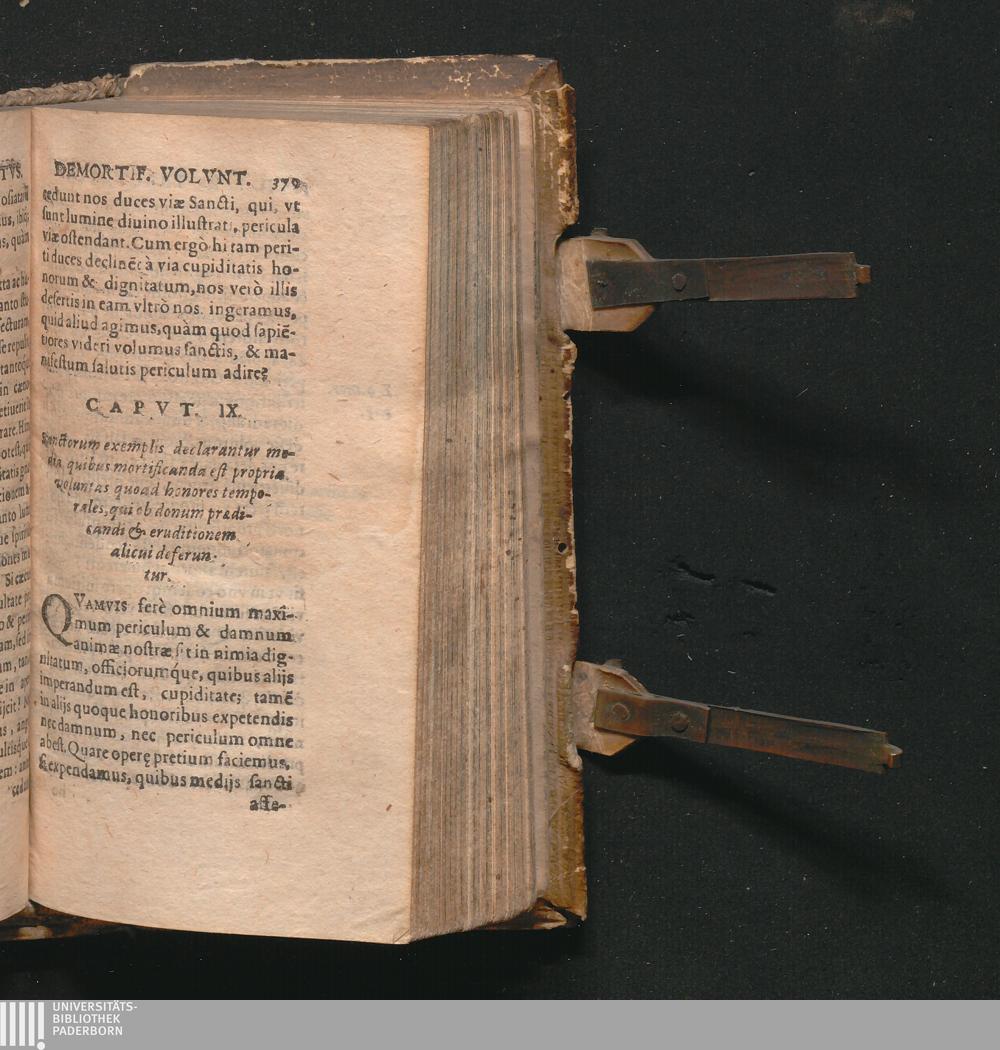 DE MORTIF. VOLVNT. 379
cedunt nos duces viæ Sancti, qui, vt
sunt lumine diuino illustrati, pericula
viæ ostendant. Cum ergò hi tam peri-
ti duces declinẽt à via cupiditatis ho-
norum & dignitatum, nos verò illis
desertis in eam vltrò nos ingeramus,
quid aliud agimus, quàm quod sapiẽ-
tiores videri volumus sanctis, & ma-
nifestum salutis periculum adire?
CAPVT. IX.
Sanctorum exemplis declarantur me-
dia, quibus mortificanda est propria
voluntas quoad honores tempo-
rales, qui ob donum prædi-
candi & eruditionem
alicui deferun-
tur.
QVAMVIS ferè omnium maxi-
mum periculum & damnum
animæ nostræ sit in nimia dig-
nitatum, officiorumq́ue, quibus alijs
imperandum est, cupiditate; tamẽ
in alijs quoque honoribus expetendis
nec damnum, nec periculum omne
abest. Quare operę pretium faciemus,
& expendamus, quibus medijs sancti
affe-
UNIVERSITÄTS-
BIBLIOTHEK
PADERBORN